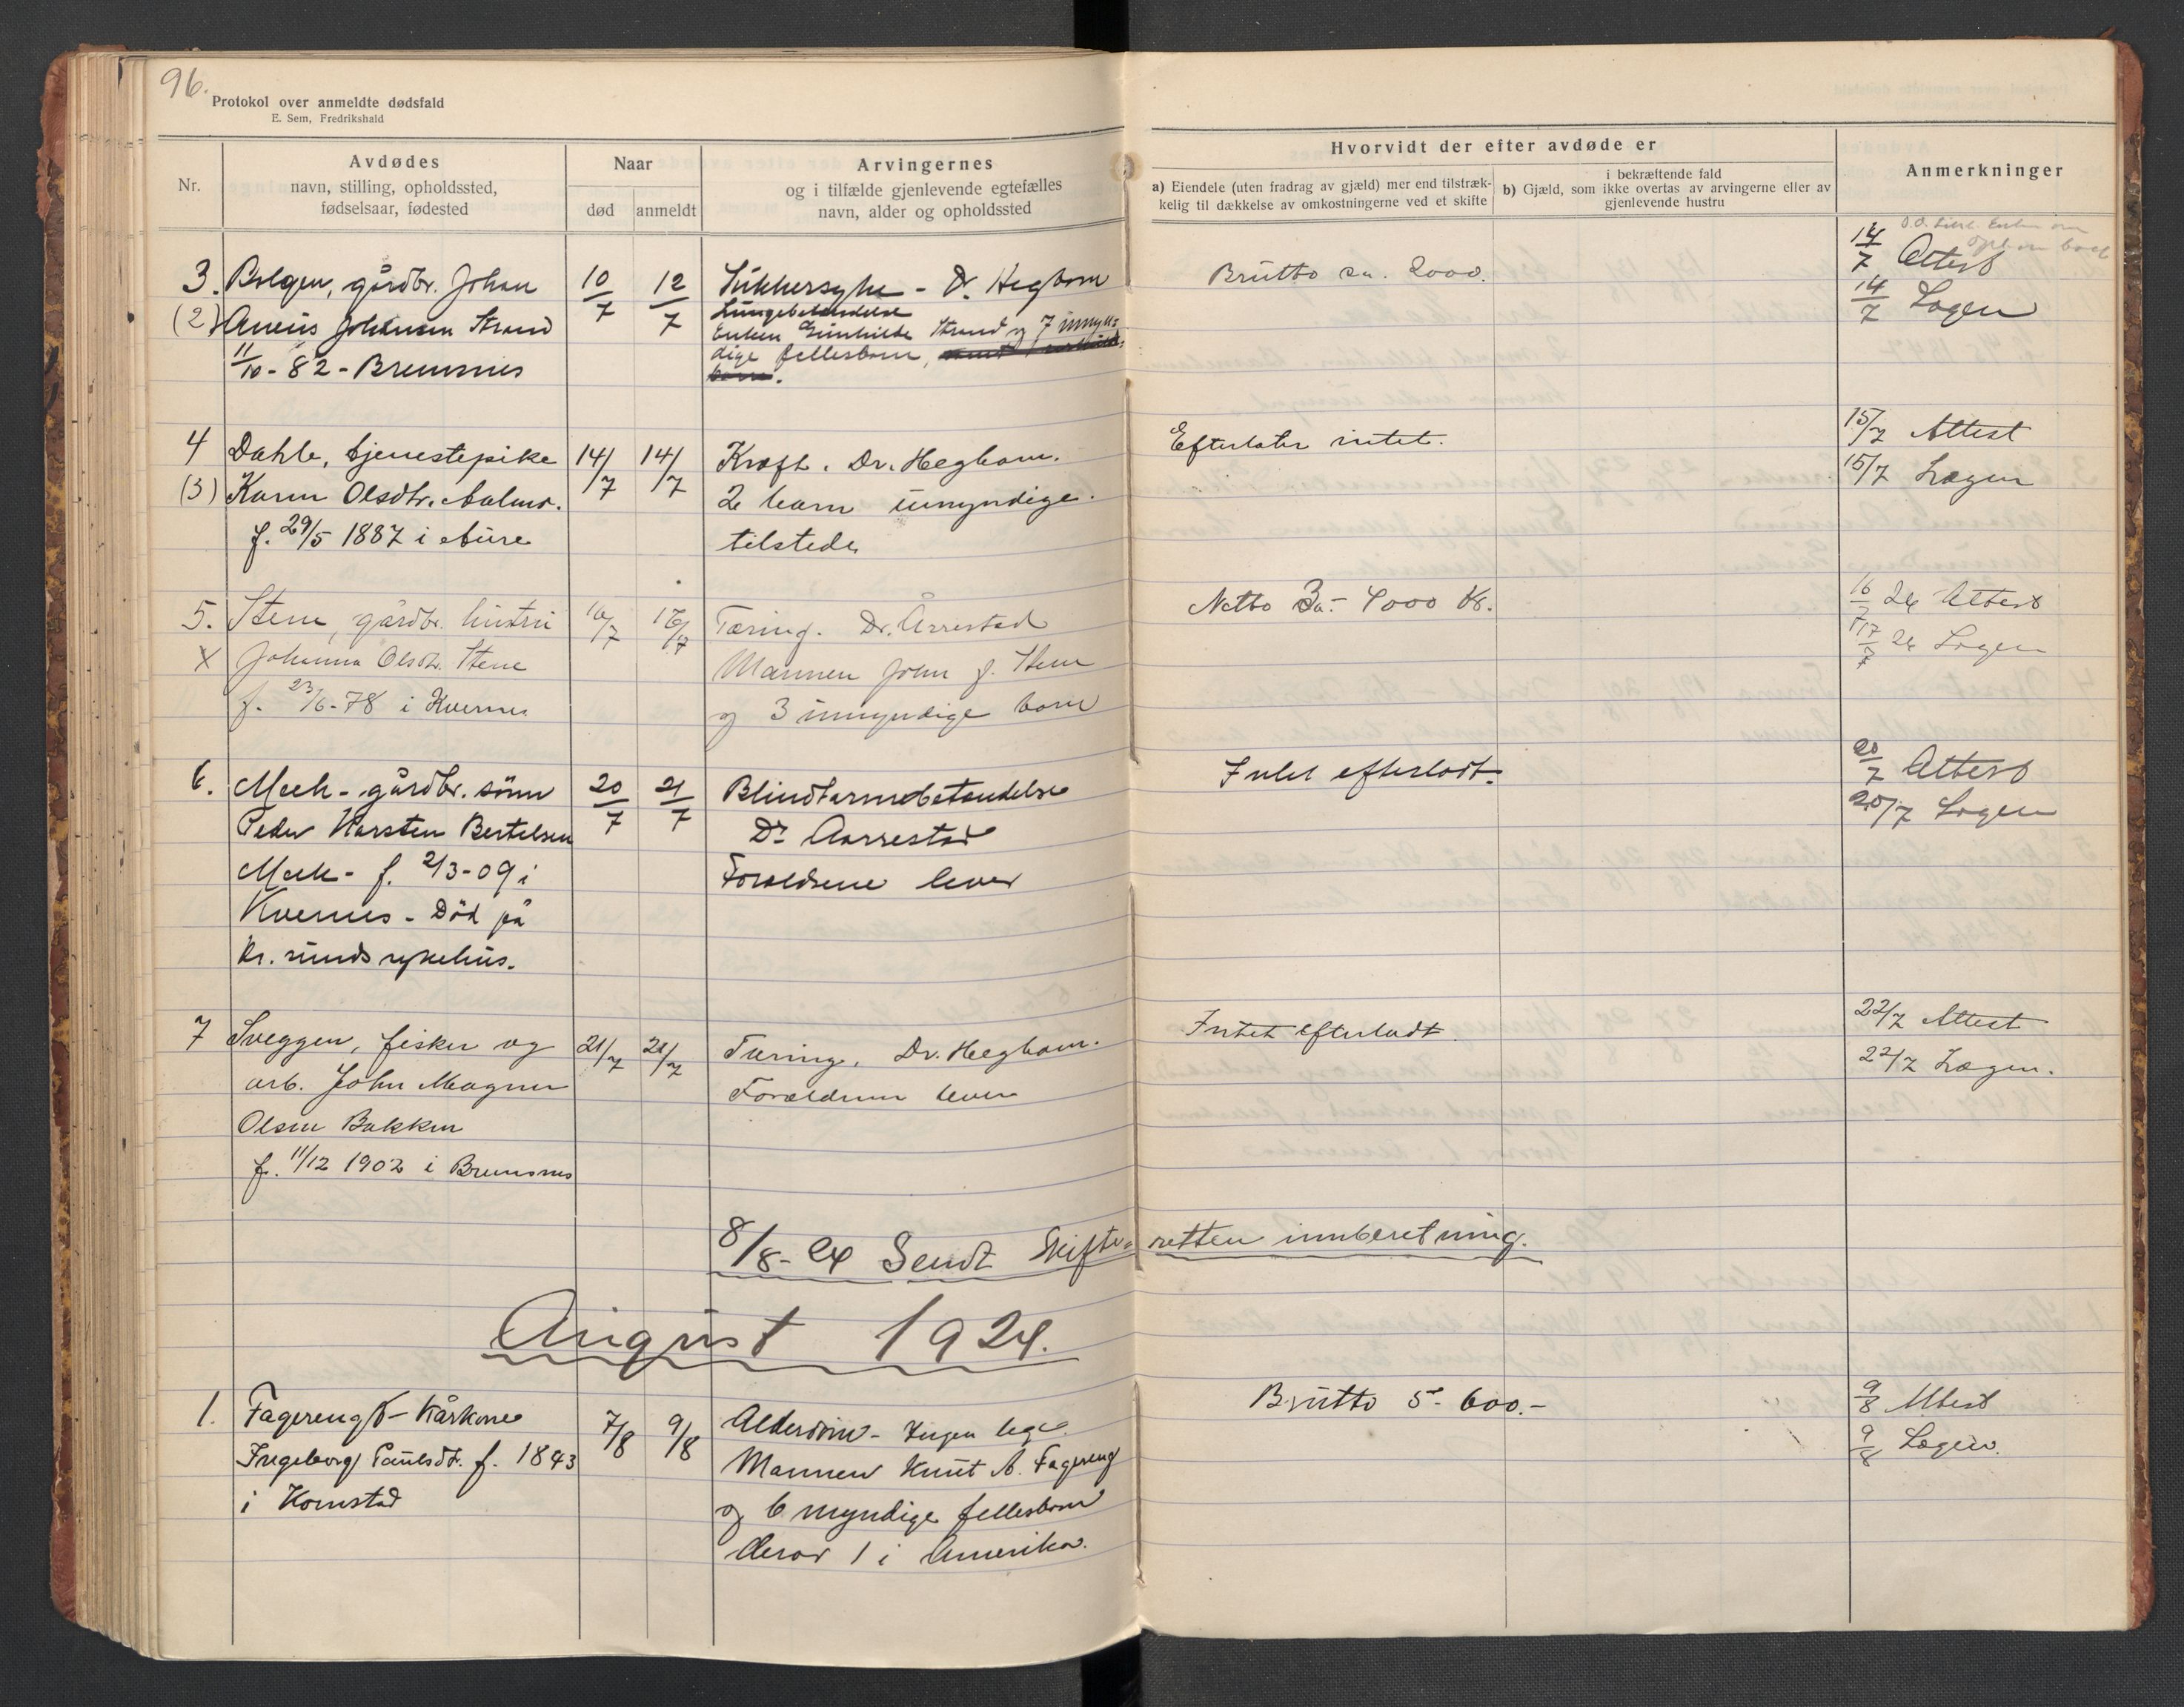 96.
Protokol over anmeldte dødsfald
E. Sem, Fredrikshald
Nr.
Avdødes
navn, stilling, opholdssted,
fødselsaar, fødested
Naar
død
anmeldt
Arvingernes
og i tilfælde gjenlevende egtefælles
navn, alder og opholdssted
Hvorvidt der efter avdøde er
a) Eiendele (uten fradrag av gjæld) mer end tilstræk-
kelig til dækkelse av omkostningerne ved et skifte
i bekræftende fald
b) Gjæld, som ikke overtas av arvingerne eller av
gjenlevende hustru
Anmerkninger
3. Bolgen, gårdbr. Johan
(2) Aneus Johansen Strand
11/10 - 82 - Bremsnes
10/7 12/7
Sukkersyke - Dr. Hegbom
Lungebetendelse
Enken Gunhilde Strand og 7 umyn-
dige fellesbarn,
Brutto ca. 2000.
14/7 Attest
14/7 Lagen
4 Dahle, tjenestepike
(3) Karen Olsdtr.
f. 29/5 1887 i Aure
14/7 14/7
Kræft. Dr. Hegbom.
2 barn umyndige.
tilstede
Efterlater intet.
15/7 Attest
15/7 Lægen
5. Stene, gårdbr. hustru
X Johanna Olsdtr. Stene
f. 23/6-78 i Kvernes
16/7 16/7
Tæring. Dr. Årrestad
Mannen John J. Stene
og 3 umyndige barn
Netto 3 a. - 4000 Kr.
16/7 24 Attest
17/7 24 Lægen
6. Meek - gårdbr. sønn
Peder Karsten Bertelsen
Meek - f. 2/3-09 i
Kvernes - Död på
Kr.sunds sykehus.
20/7 21/7
Blindtarmsbetændelse
Dr Aarrestad
Foreldrene lever
Intet efterlodt.
20/7 Attest
20/7 Lægen
7 Sveggen, fisker og
arb. John Magnus
Olsen Bakken
f. 11/12 1902 i Bremsnes
21/7 21/7
Tæring. Dr. Hegbom.
Forældrene lever
Intet efterladt.
22/7 Attest
22/7 Lægen.
8/8-24 Sendt Skifteretten innberetning.
August 1924.
1. Fagereng - Kårkone
Ingeborg Paulsdtr. f. 1843
i Kornstad
7/8 9/8
Alderdom - Ingen lege.
Mannen Knut A. Fagereng
og 6 myndige fellesbarn
derav 1 i Amerika.
Brutto 5 - 600.-
9/8 Attest
9/8 Lægen.